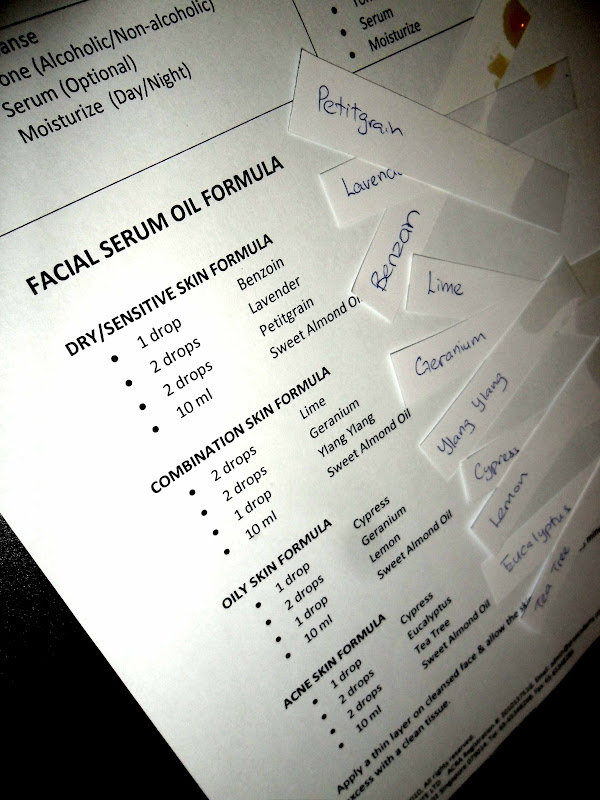 anse
one (Alcoholic/Non-alcoholic)
Serum (Optional)
Moisturize (Day/Night)
Serum
Moisturize
FACIAL SERUM OIL FORMULA
DRY/SENSITIVE SKIN FORMULA
• 1 drop Benzoin
• 2 drops Lavender
• 2 drops Petitgrain
• 10 ml Sweet Almond Oil
COMBINATION SKIN FORMULA
• 2 drops Lime
• 2 drops Geranium
• 1 drop Ylang Ylang
• 10 ml Sweet Almond Oil
OILY SKIN FORMULA
• 1 drop Cypress
• 2 drops Geranium
• 1 drop Lemon
• 10 ml Sweet Almond Oil
ACNE SKIN FORMULA
• 1 drop Cypress
• 2 drops Eucalyptus
• 2 drops Tea Tree
• 10 ml Sweet Almond Oil
Apply a thin layer on cleansed face & allow the
excess with a clean tissue.
Petitgrain
Lavend
Benzoin
Lime
Geranium
Ylang Ylang
Cypress
Lemon
Eucalyptus
Tea Tree